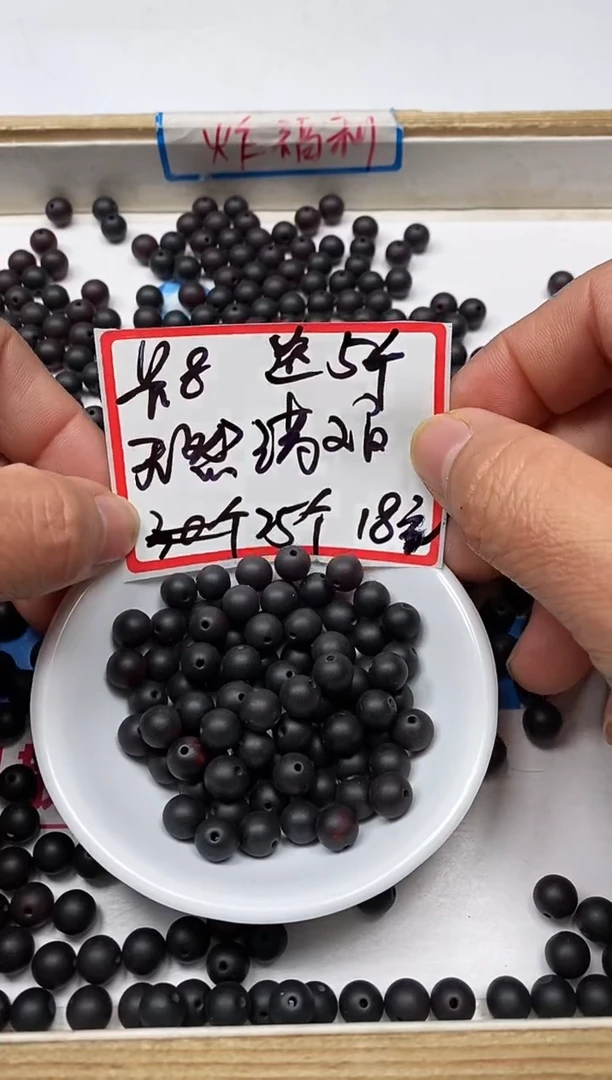 炸福利
号8 送5个
天然玛瑙
30个25个 18元